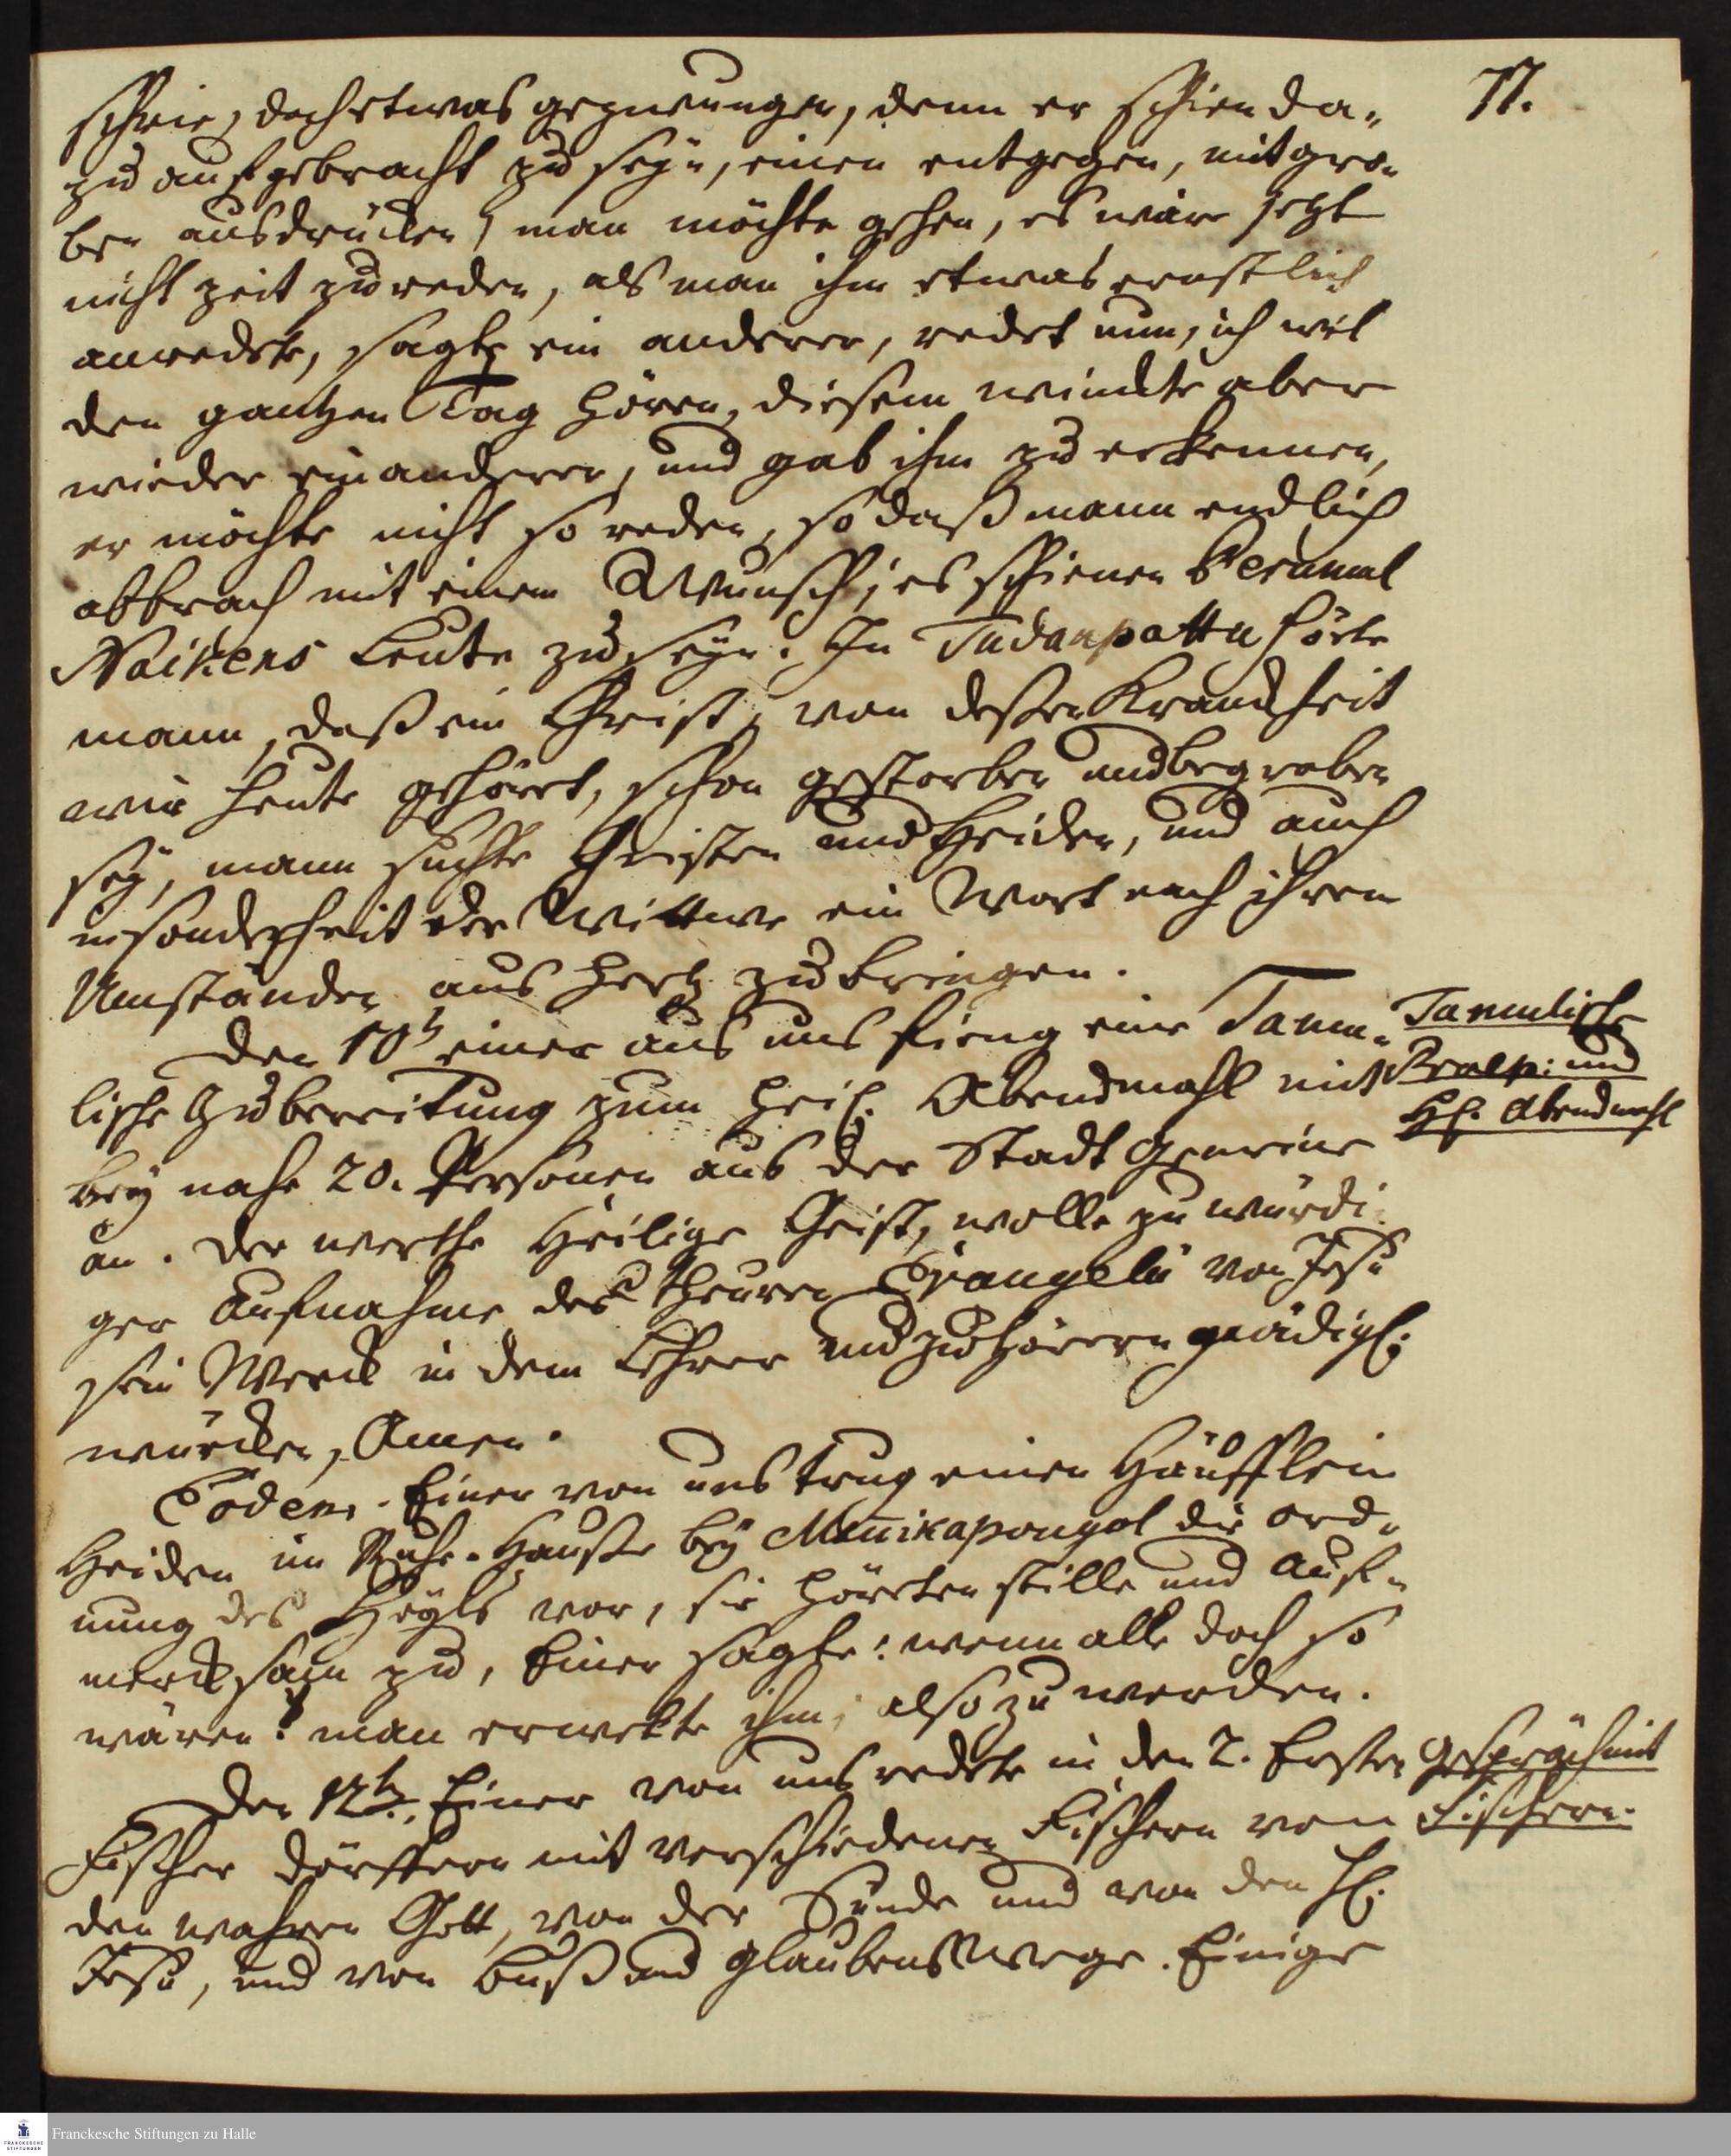 77.
schrie, doch etwas gezwungen, denn er schien da-
zu aufgebracht zu seyn, einen entgegen, mit gro-
ben ausdrücken, man möchte gehen, es wäre jetzt
nicht zeit zu reden, als man ihn etwas ernstlich
anredete, sagte ein anderer, redet nun, ich will
den gantzen Tag hören, diesem winckte aber
wieder ein anderer, und gab ihm zu erkennen,
er möchte nicht so reden, so daß mann endlich
abbrach mit einem Wunsch; es schienen Perumal
Naikens Leute zu seyn. In Tudanpattu hörte
mann, daß ein Christ, von deßen Kranckheit
wir heute gehöret, schon gestorben und begraben
sey, mann suchte Christen und Heiden, und auch
insonderheit der Wittwe ein Wort nach ihren
Umständen ans Hertz zu bringen.
Den 10t einer aus uns fieng eine Tamu-
lische Zubereitung zum heil. Abendmahl mit
bey nahe 20. Persohnen aus der Stadt Gemeine
an. Der werthe Heilige Geist, wolle zu würdi-
ger Aufnahme des theuren Evangelii von Jesu
sein Werck in dem Lehrer und Zuhörern gnädigl.
würcken, Amen.
Eodem. Einer von uns trug einen Häufflein
Heiden im Ruhe-Hauße bey Mannikapongol die ord-
nung des Heyls vor, sie hörten stille und auf-
mercksam zu, Einer sagte: wenn alle doch so
wären! man erwekte ihn, also zu werden.
Den 12t. Einer von uns redete in den 2. Ersten
Fischer Dörffern mit verschiedenen Fischern von
den wahren Gott, von der Sünde und von den H.
Jesu, und von Buß und Glaubens Wege. Einige
Tamulische
Præp: und
Hl. Abendmahl
Gespräch mit
Fischern.
Franckesche Stiftungen zu Halle
FRANCKESCHE
STIFTUNGEN